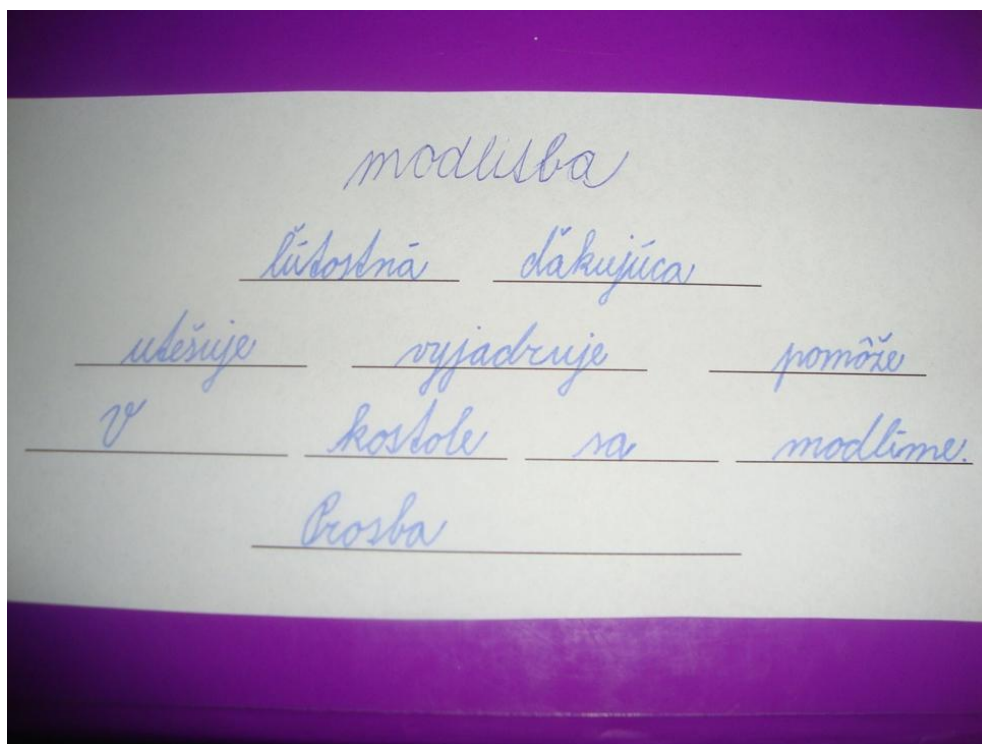 modlitba
ľútostná ďakujúca
utešuje vyjadruje pomôže
v kostole sa modlíme.
Prosba